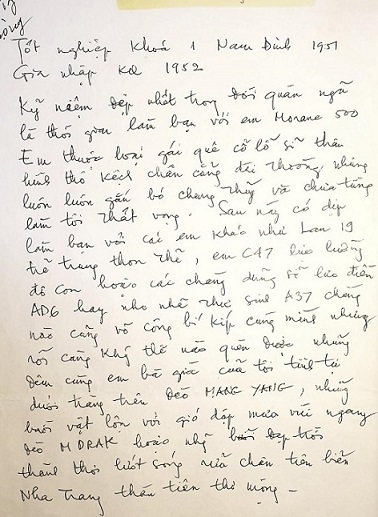 Tốt nghiệp Khoá 1 Nam Định 1951
Gia nhập KQ 1952
Kỷ niệm đẹp nhất trong đời quân ngũ
là thời gian làm bạn với em Morane 500
Em thuộc loại gái quê cổ lỗ sĩ thân
hình thô kệch chân cẳng dài thường, nhưng
luôn luôn gắn bó chung thủy và chưa từng
làm tôi thất vọng. Sau này có dịp
làm bạn với các em khác như Lan 19
trẻ trung thon thả, em C47
đô con hoặc các chàng dũng sĩ
AD6 hay nhỏ nhắn như A37 chẳng
nào cũng võ công bí kíp cùng mình nhưng
rồi cũng không thể nào quên được những
đêm cùng em bà già của tôi tình tự
dưới trăng trên đèo MANG YANG, những
buổi vật lộn với gió dập mưa vùi ngang
đèo MDRAK hoặc những buổi đẹp trời
thảnh thơi lướt sóng rửa chân trên biển
Nha Trang thần tiên thơ mộng -